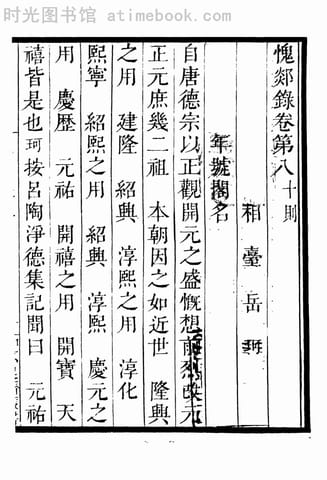 时光图书馆 - atimebook.com
愧郯錄卷第八十則
相臺岳珂
年號閣名
自唐德宗以正觀開元之盛慨想前烈改元
正元庶幾二祖 本朝因之如近世 隆興
之用 建隆 紹興 淳熙之用 淳化
熙寧 紹熙之用 紹興 淳熙 慶元之
用 慶歷 元祐 開禧之用 開寶 天
禧皆是也珂按呂陶淨德集記聞曰 元祐